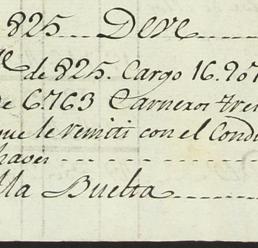 825 Deve
de 825. Cargo 16.207
de 6763 Carneros tre
que le remiti con el Cond
haver
lla Buelta